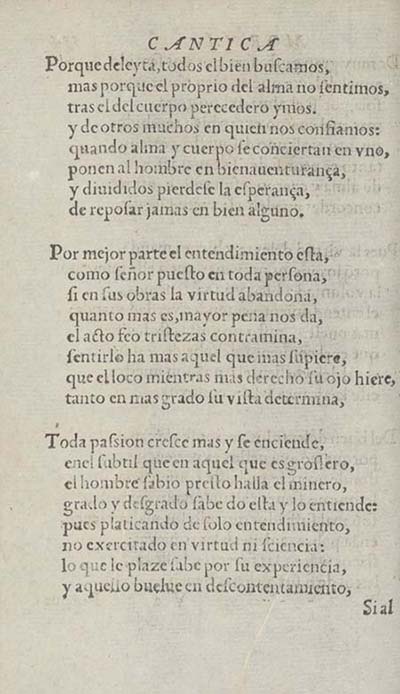 CANTICA
Porque deleyta, todos el bien buscamos,
mas porque el proprio del alma no sentimos,
tras el del cuerpo perecedero ymos.
y de otros muchos en quien nos confiamos:
quando alma y cuerpo se conciertan en vno,
ponen al hombre en bienauenturança,
y diuididos pierdese la esperança,
de reposar jamas en bien alguno.
Por mejor parte el entendimiento esta,
como señor puesto en toda persona,
si en sus obras la virtud abandona,
quanto mas es, mayor pena nos da,
el acto feo tristezas contramina,
sentirlo ha mas aquel que mas supiere,
que el loco mientras mas derecho su ojo hiere,
tanto en mas grado su vista determina,
Toda passion cresce mas y se enciende,
enel subtil que en aquel que es grossero,
el hombre sabio presto halla el minero,
grado y desgrado sabe do esta y lo entiende:
pues platicando de solo entendimiento,
no exercitado en virtud ni sciencia:
lo que le plaze sabe por su experiencia,
y aquello buelue en descontentamiento,
Si al